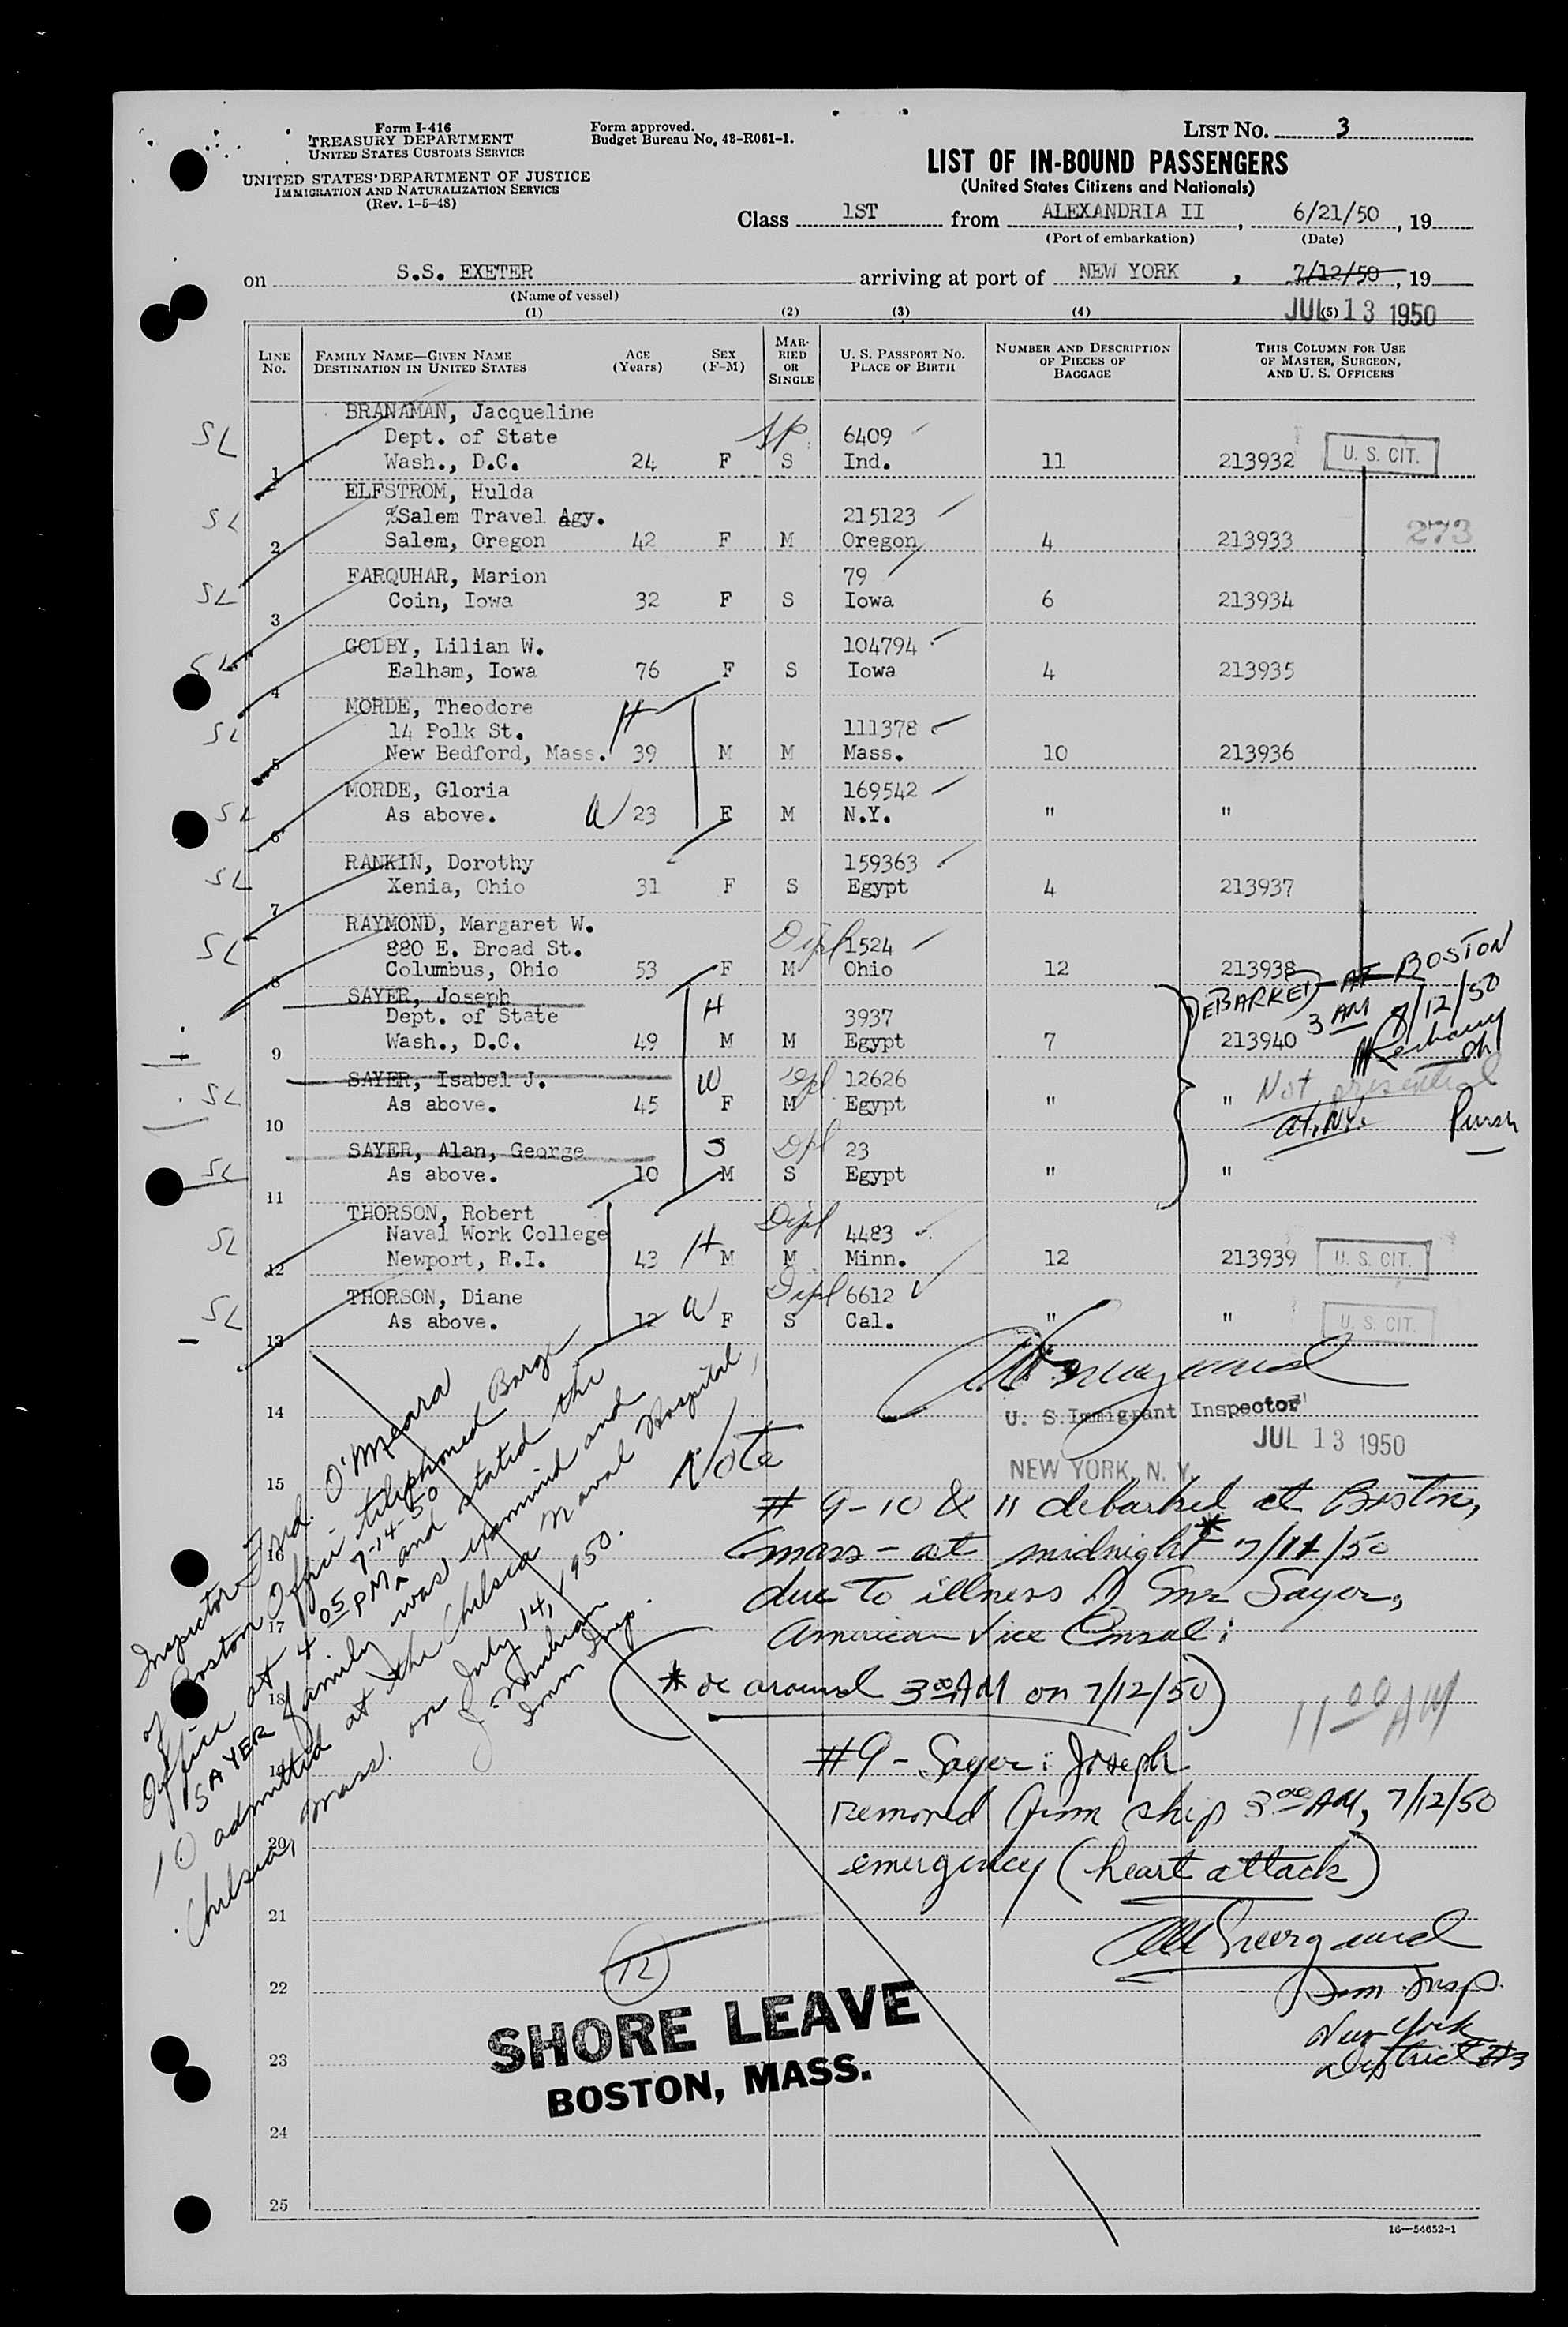 Form I-416
TREASURY DEPARTMENT
UNITED STATES CUSTOMS SERVICE
UNITED STATES DEPARTMENT OF JUSTICE
IMMIGRATION AND NATURALIZATION SERVICE
(Rev. 1-5-48)
Form approved.
Budget Bureau No. 48-R061-1.
LIST NO. 3
LIST OF IN-BOUND PASSENGERS
(United States Citizens and Nationals)
Class 1ST from ALEXANDRIA II, 6/21/50, 19
(Port of embarkation) (Date)
on S.S. EXETER arriving at port of NEW YORK, 7/12/50, 19
(Name of vessel)
JUL 13 1950
(1) (2) (3) (4) (5)
LINE NO. FAMILY NAME—GIVEN NAME DESTINATION IN UNITED STATES AGE (Years) SEX (F-M) MARRIED OR SINGLE U. S. PASSPORT NO. PLACE OF BIRTH NUMBER AND DESCRIPTION OF PIECES OF BAGGAGE THIS COLUMN FOR USE OF MASTER, SURGEON, AND U. S. OFFICERS
BRANAMAN, Jacqueline
SL Dept. of State Sp. 6409
1 Wash., D.C. 24 F S Ind. 11 213932 U. S. CIT.
ELFSTROM, Hulda
SL %Salem Travel Agy. 215123 273
2 Salem, Oregon 42 F M Oregon 4 213933
FARQUHAR, Marion 79
SL Coin, Iowa 32 F S Iowa 6 213934
3
GODBY, Lilian W. 104794
SL Ealham, Iowa 76 F S Iowa 4 213935
4
MORDE, Theodore H
SL 14 Polk St. 111378
5 New Bedford, Mass. 39 M M Mass. 10 213936
MORDE, Gloria 169542
SL As above. W 23 F M N.Y. " "
6
RANKIN, Dorothy 159363
SL Xenia, Ohio 31 F S Egypt 4 213937
7
RAYMOND, Margaret W.
SL 880 E. Broad St. Dipl 1524
8 Columbus, Ohio 53 F M Ohio 12 213938
SAYER, Joseph H DEBARKED AT BOSTON
Dept. of State 3937 3 AM 7/12/50
9 Wash., D.C. 49 M M Egypt 7 213940
SAYER, Isabel J. W Dpl 12626 Not presented
SL As above. 45 F M Egypt " " at N.Y.
10 Purser
SAYER, Alan, George S Dpl 23
SL As above. 10 M S Egypt " "
11
THORSON, Robert
SL Naval Work College Dipl 4483
12 Newport, R.I. 43 H M M Minn. 12 213939 U. S. CIT.
THORSON, Diane Dipl 6612
SL As above. 12 W F S Cal. " " U. S. CIT.
13
14
U. S. Immigrant Inspector
JUL 13 1950
NEW YORK, N. Y.
15
Note
# 9-10 & 11 debarked at Boston,
16
Mass - at midnight * 7/11/50
due to illness of Mr Sayer,
17
American Vice Consul:
(* or around 3 00 AM on 7/12/50)
18
11 00 AM
19
#9 - Sayer: Joseph
removed from ship 3 00 AM, 7/12/50
20
emergency (heart attack)
21
22
Imm. Insp.
New York
District #3
23
24
25
Inspector Fred. O'Meara
of Boston Office telephoned Barge
Office at 4 05 PM 7-14-50 and stated the
SAYER family was examined and
admitted at the Chelsea Naval Hospital,
Chelsea, Mass. on July 14, 1950.
Imm Insp.
12
SHORE LEAVE
BOSTON, MASS.
16—54652-1